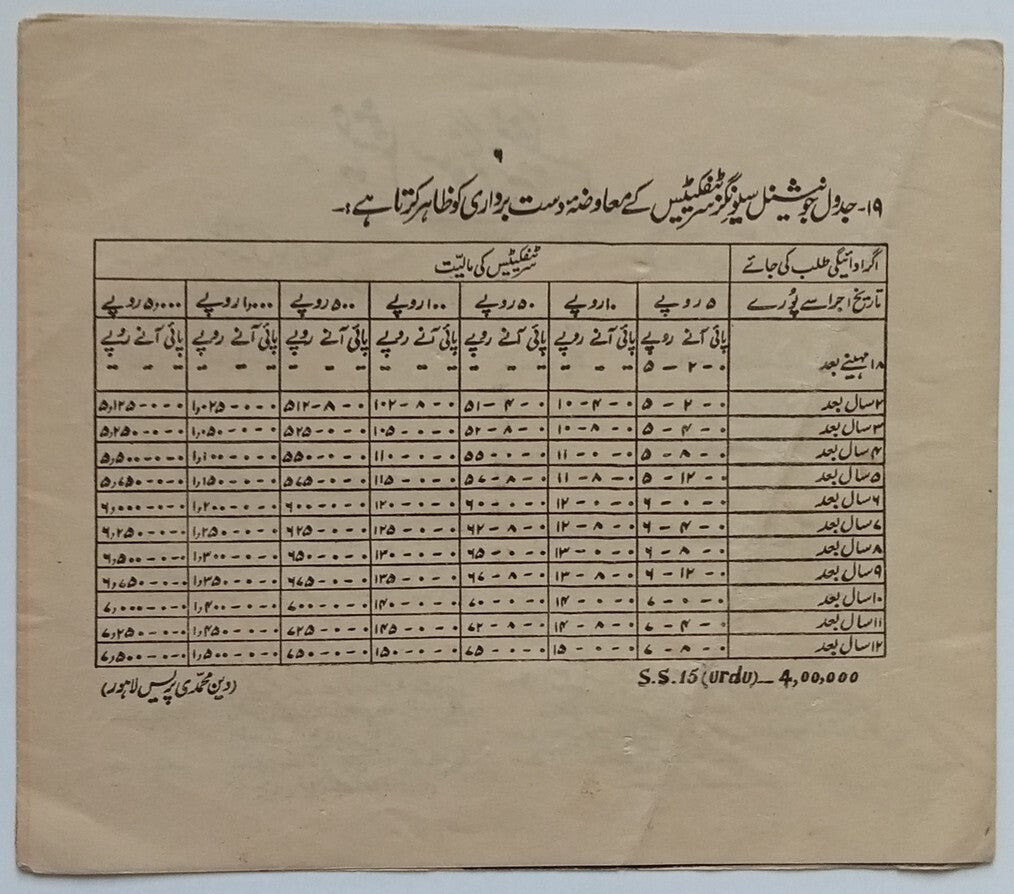 ۶
۱۹- جدول جو نیشنل سیونگز سرٹیفکیٹس کے معاوضۂ دست برداری کو ظاہر کرتا ہے :-
اگر ادائیگی طلب کی جائے سرٹیفکیٹس کی مالیّت
تاریخ اجرا سے پُورے ۵ روپے ۱۰ روپے ۵۰ روپے ۱۰۰ روپے ۵۰۰ روپے ۱,۰۰۰ روپے ۵,۰۰۰ روپے
پائی آنے روپے پائی آنے روپے پائی آنے روپے پائی آنے روپے پائی آنے روپے پائی آنے روپے پائی آنے روپے
۱۸ مہینے بعد ۵-۲-۰ - - - - - - - - - - - - - - - - - -
۲ سال بعد ۵-۲-۰ ۱۰-۴-۰ ۵۱-۴-۰ ۱۰۲-۸-۰ ۵۱۲-۸-۰ ۱,۰۲۵-۰-۰ ۵,۱۲۵-۰-۰
۳ سال بعد ۵-۴-۰ ۱۰-۸-۰ ۵۲-۸-۰ ۱۰۵-۰-۰ ۵۲۵-۰-۰ ۱,۰۵۰-۰-۰ ۵,۲۵۰-۰-۰
۴ سال بعد ۵-۸-۰ ۱۱-۰-۰ ۵۵-۰-۰ ۱۱۰-۰-۰ ۵۵۰-۰-۰ ۱,۱۰۰-۰-۰ ۵,۵۰۰-۰-۰
۵ سال بعد ۵-۱۲-۰ ۱۱-۸-۰ ۵۷-۸-۰ ۱۱۵-۰-۰ ۵۷۵-۰-۰ ۱,۱۵۰-۰-۰ ۵,۷۵۰-۰-۰
۶ سال بعد ۶-۰-۰ ۱۲-۰-۰ ۶۰-۰-۰ ۱۲۰-۰-۰ ۶۰۰-۰-۰ ۱,۲۰۰-۰-۰ ۶,۰۰۰-۰-۰
۷ سال بعد ۶-۴-۰ ۱۲-۸-۰ ۶۲-۸-۰ ۱۲۵-۰-۰ ۶۲۵-۰-۰ ۱,۲۵۰-۰-۰ ۶,۲۵۰-۰-۰
۸ سال بعد ۶-۸-۰ ۱۳-۰-۰ ۶۵-۰-۰ ۱۳۰-۰-۰ ۶۵۰-۰-۰ ۱,۳۰۰-۰-۰ ۶,۵۰۰-۰-۰
۹ سال بعد ۶-۱۲-۰ ۱۳-۸-۰ ۶۷-۸-۰ ۱۳۵-۰-۰ ۶۷۵-۰-۰ ۱,۳۵۰-۰-۰ ۶,۷۵۰-۰-۰
۱۰ سال بعد ۷-۰-۰ ۱۴-۰-۰ ۷۰-۰-۰ ۱۴۰-۰-۰ ۷۰۰-۰-۰ ۱,۴۰۰-۰-۰ ۷,۰۰۰-۰-۰
۱۱ سال بعد ۷-۴-۰ ۱۴-۸-۰ ۷۲-۸-۰ ۱۴۵-۰-۰ ۷۲۵-۰-۰ ۱,۴۵۰-۰-۰ ۷,۲۵۰-۰-۰
۱۲ سال بعد ۷-۸-۰ ۱۵-۰-۰ ۷۵-۰-۰ ۱۵۰-۰-۰ ۷۵۰-۰-۰ ۱,۵۰۰-۰-۰ ۷,۵۰۰-۰-۰
S.S.15 (urdu)— 4,00,000
(دین محمّدی پریس لاہور)